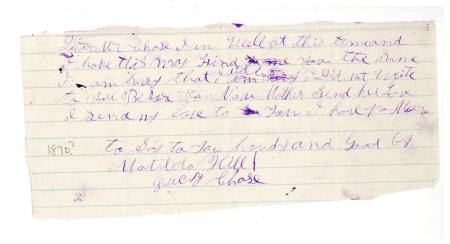 Dear Mr Chase I am Well at this time and
I hope this May Find you the Same
I am Sorry that I did not Write
to you Before than Now Mother Send her Love
I Send my Love to you I have No More
1870? to Say to you houd and Good by
Matilda Hill
Chase